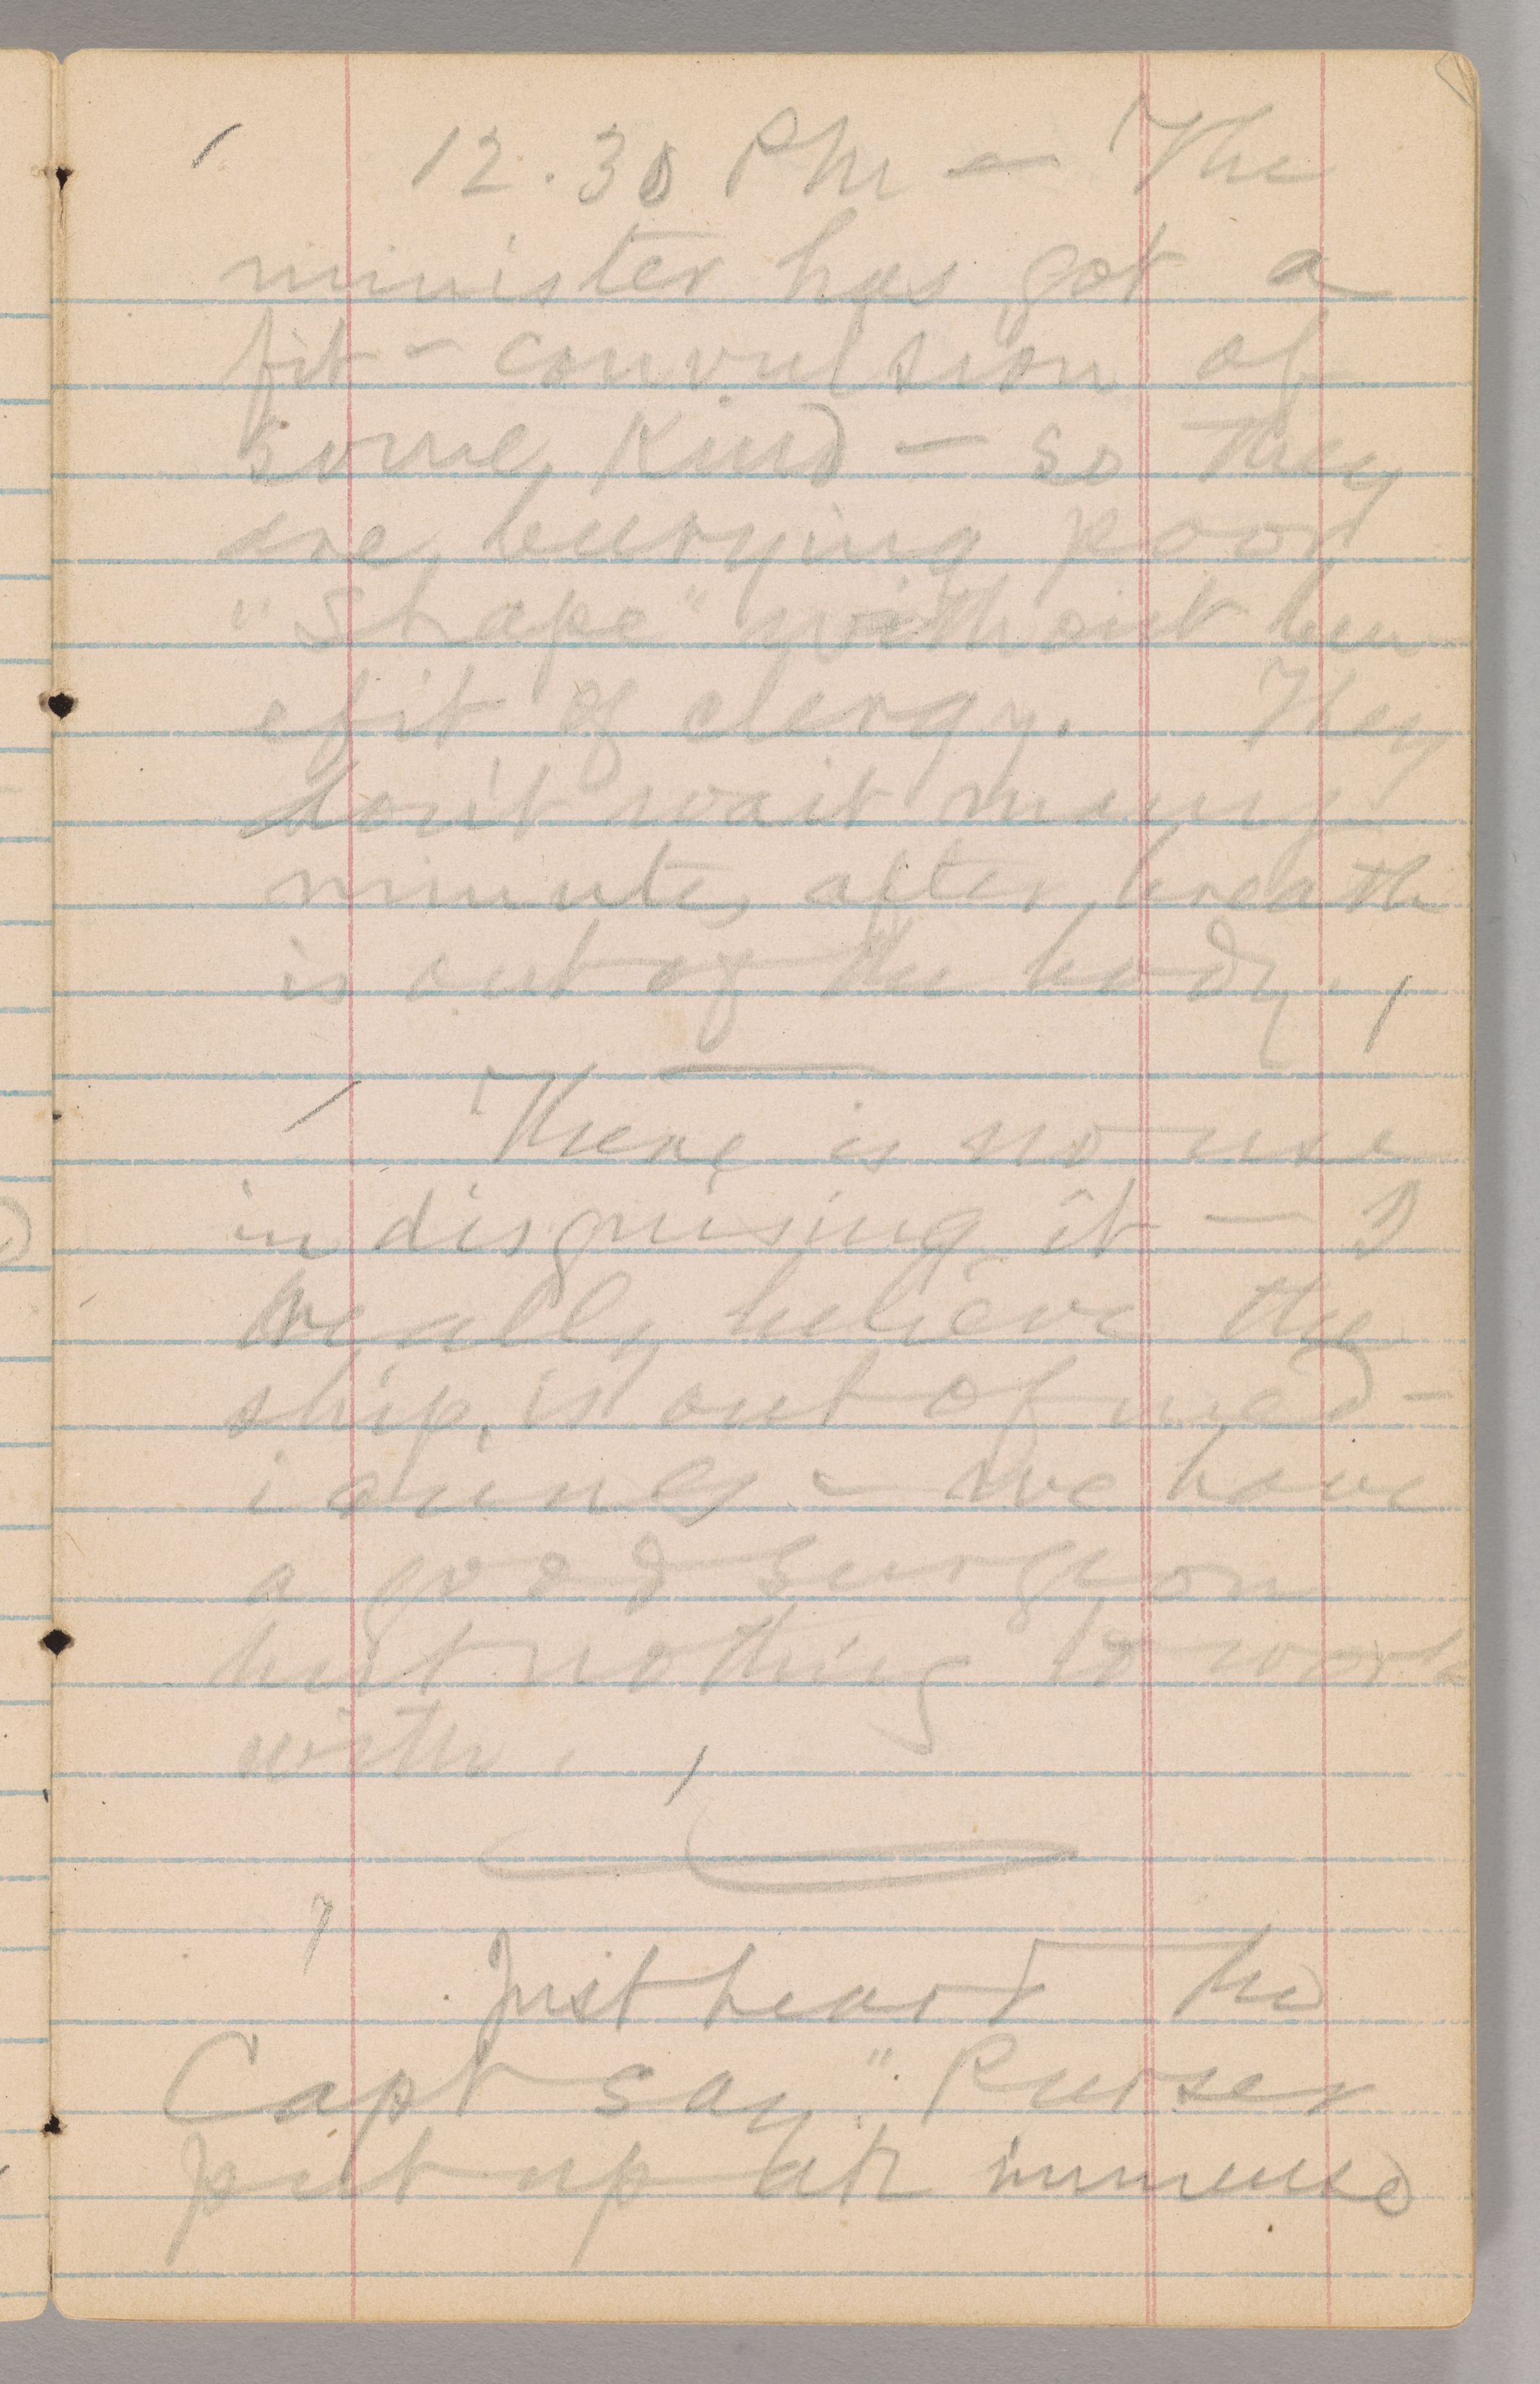 12.30 PM — The
minister has got a
fit - convulsion of
some kind — so they
are burying poor
"Shape" without ben
efit of clergy. They
don't wait many
minutes after breath
is out of the body.
There is no use
in disguising it — I
really believe the
ship is out of med-
icines - we have
a good surgeon
but nothing to work
with.
Just heard the
Capt say "Purser
put up an immense